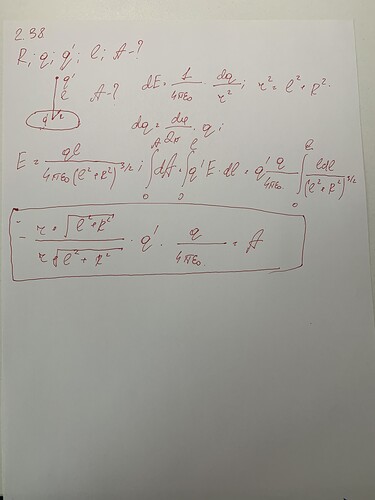 2.38.
R; q; q'; l; A-?
q'
l
A-?
q
dE = 1/4πε₀ · dq/r²; r² = l² + R².
dq = dφ/2π · q;
E = ql/4πε₀(l²+R²)^3/2; ∫₀ᴬ dA = ∫₀ˡ q'E·dl = q' q/4πε₀ ∫₀ˡ ldl/(l²+R²)^3/2
- r · √l²+R² / r√l²+R² · q' · q/4πε₀ = A